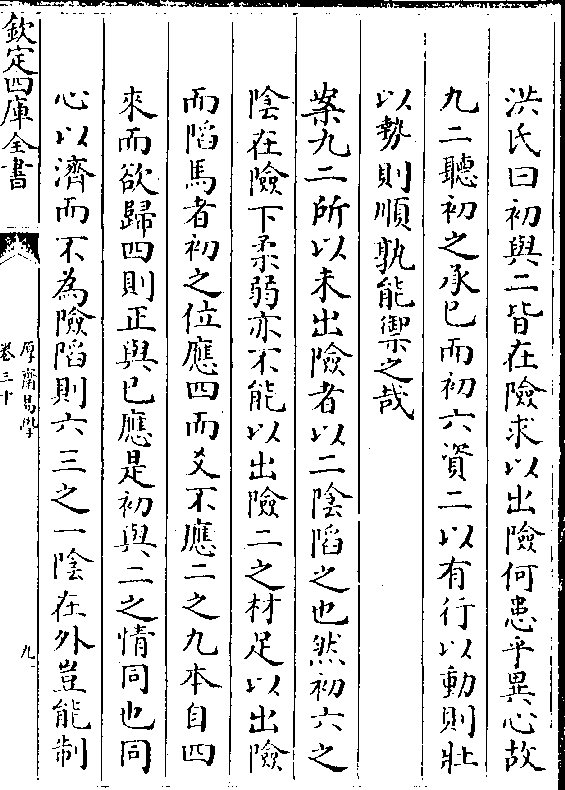 洪氏曰初與二皆在險求以出險何患乎異心故
九二聽初之承已而初六資二以有行以動則壯
以勢則順孰能禦之哉
案九二所以未出險者以二陰陷之也然初六之
陰在險下柔弱亦不能以出險二之材足以出險
而陷焉者初之位應四而爻不應二之九本自四
來而欲歸四則正與已應是初與二之情同也同
心以濟而不為險陷則六三之一陰在外豈能制
欽定四庫全書
厚齋易學
卷三十
九